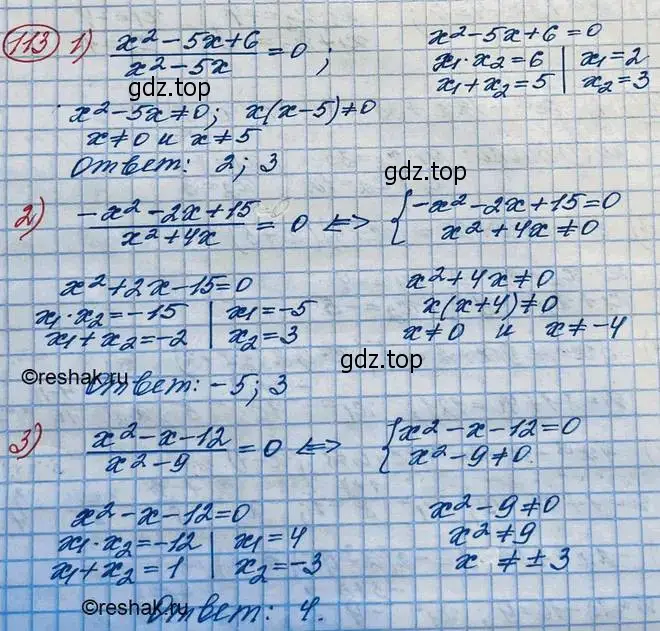 113 1) (x² - 5x + 6)/(x² - 5x) = 0;
x² - 5x + 6 = 0
x₁ · x₂ = 6 | x₁ = 2
x₁ + x₂ = 5 | x₂ = 3
x² - 5x ≠ 0; x(x - 5) ≠ 0
x ≠ 0 и x ≠ 5
Ответ: 2; 3
gdz.top
2) (-x² - 2x + 15)/(x² + 4x) = 0 ⟺ { -x² - 2x + 15 = 0
x² + 4x ≠ 0
x² + 2x - 15 = 0
x₁ · x₂ = -15 | x₁ = -5
x₁ + x₂ = -2 | x₂ = 3
x² + 4x ≠ 0
x(x + 4) ≠ 0
x ≠ 0 и x ≠ -4
gdz.top
©reshak.ru
Ответ: -5; 3
3) (x² - x - 12)/(x² - 9) = 0 ⟺ { x² - x - 12 = 0
x² - 9 ≠ 0
x² - x - 12 = 0
x₁ · x₂ = -12 | x₁ = 4
x₁ + x₂ = 1 | x₂ = -3
x² - 9 ≠ 0
x² ≠ 9
x ≠ ± 3
©reshak.ru
Ответ: 4.